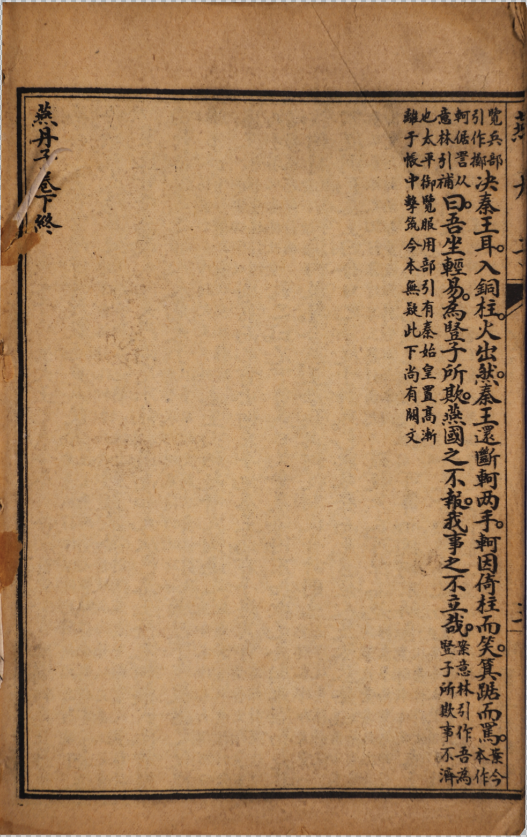 覽兵部引作擲决秦王耳。入銅柱。火出。然秦王還斷軻两手。軻因倚柱而笑。箕踞而罵。案今本作
軻倨詈从意林引補曰。吾坐輕易。為豎子所欺。燕國之不報。我事之不立哉。案意林引作吾為豎子所欺事不濟
也太平御覽服用部引有秦始皇置高漸離于帳中擊筑今本無疑此下尚有闕文
燕丹子卷下終